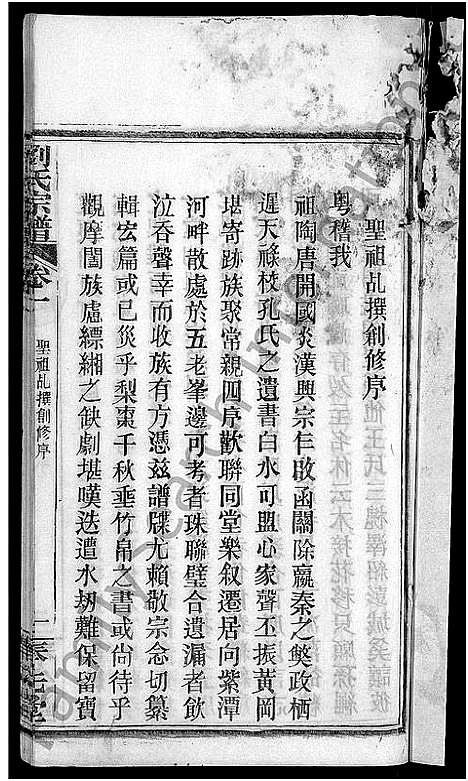 聖祖乩撰創修序
粤稽我
祖陶唐開國炎漢興宗仁啟函關除嬴秦之獘政栖
遲天祿校孔氏之遺書白水可盟心家聲丕振黃岡
堪寄跡族聚常親四序歡聯同堂樂叙遷居向紫潭
河畔散處於五老峯邊可考者珠聯璧合遺漏者飲
泣吞聲幸而收族有方憑兹譜牒尤賴敬宗念切纂
輯宏篇或已災乎梨棗千秋垂竹帛之書或尚待乎
觀摩闔族虛縹緗之缺劇堪嘆迭遭水刼難保留寶
劉氏宗譜
卷一
聖祖乩撰創修序
一